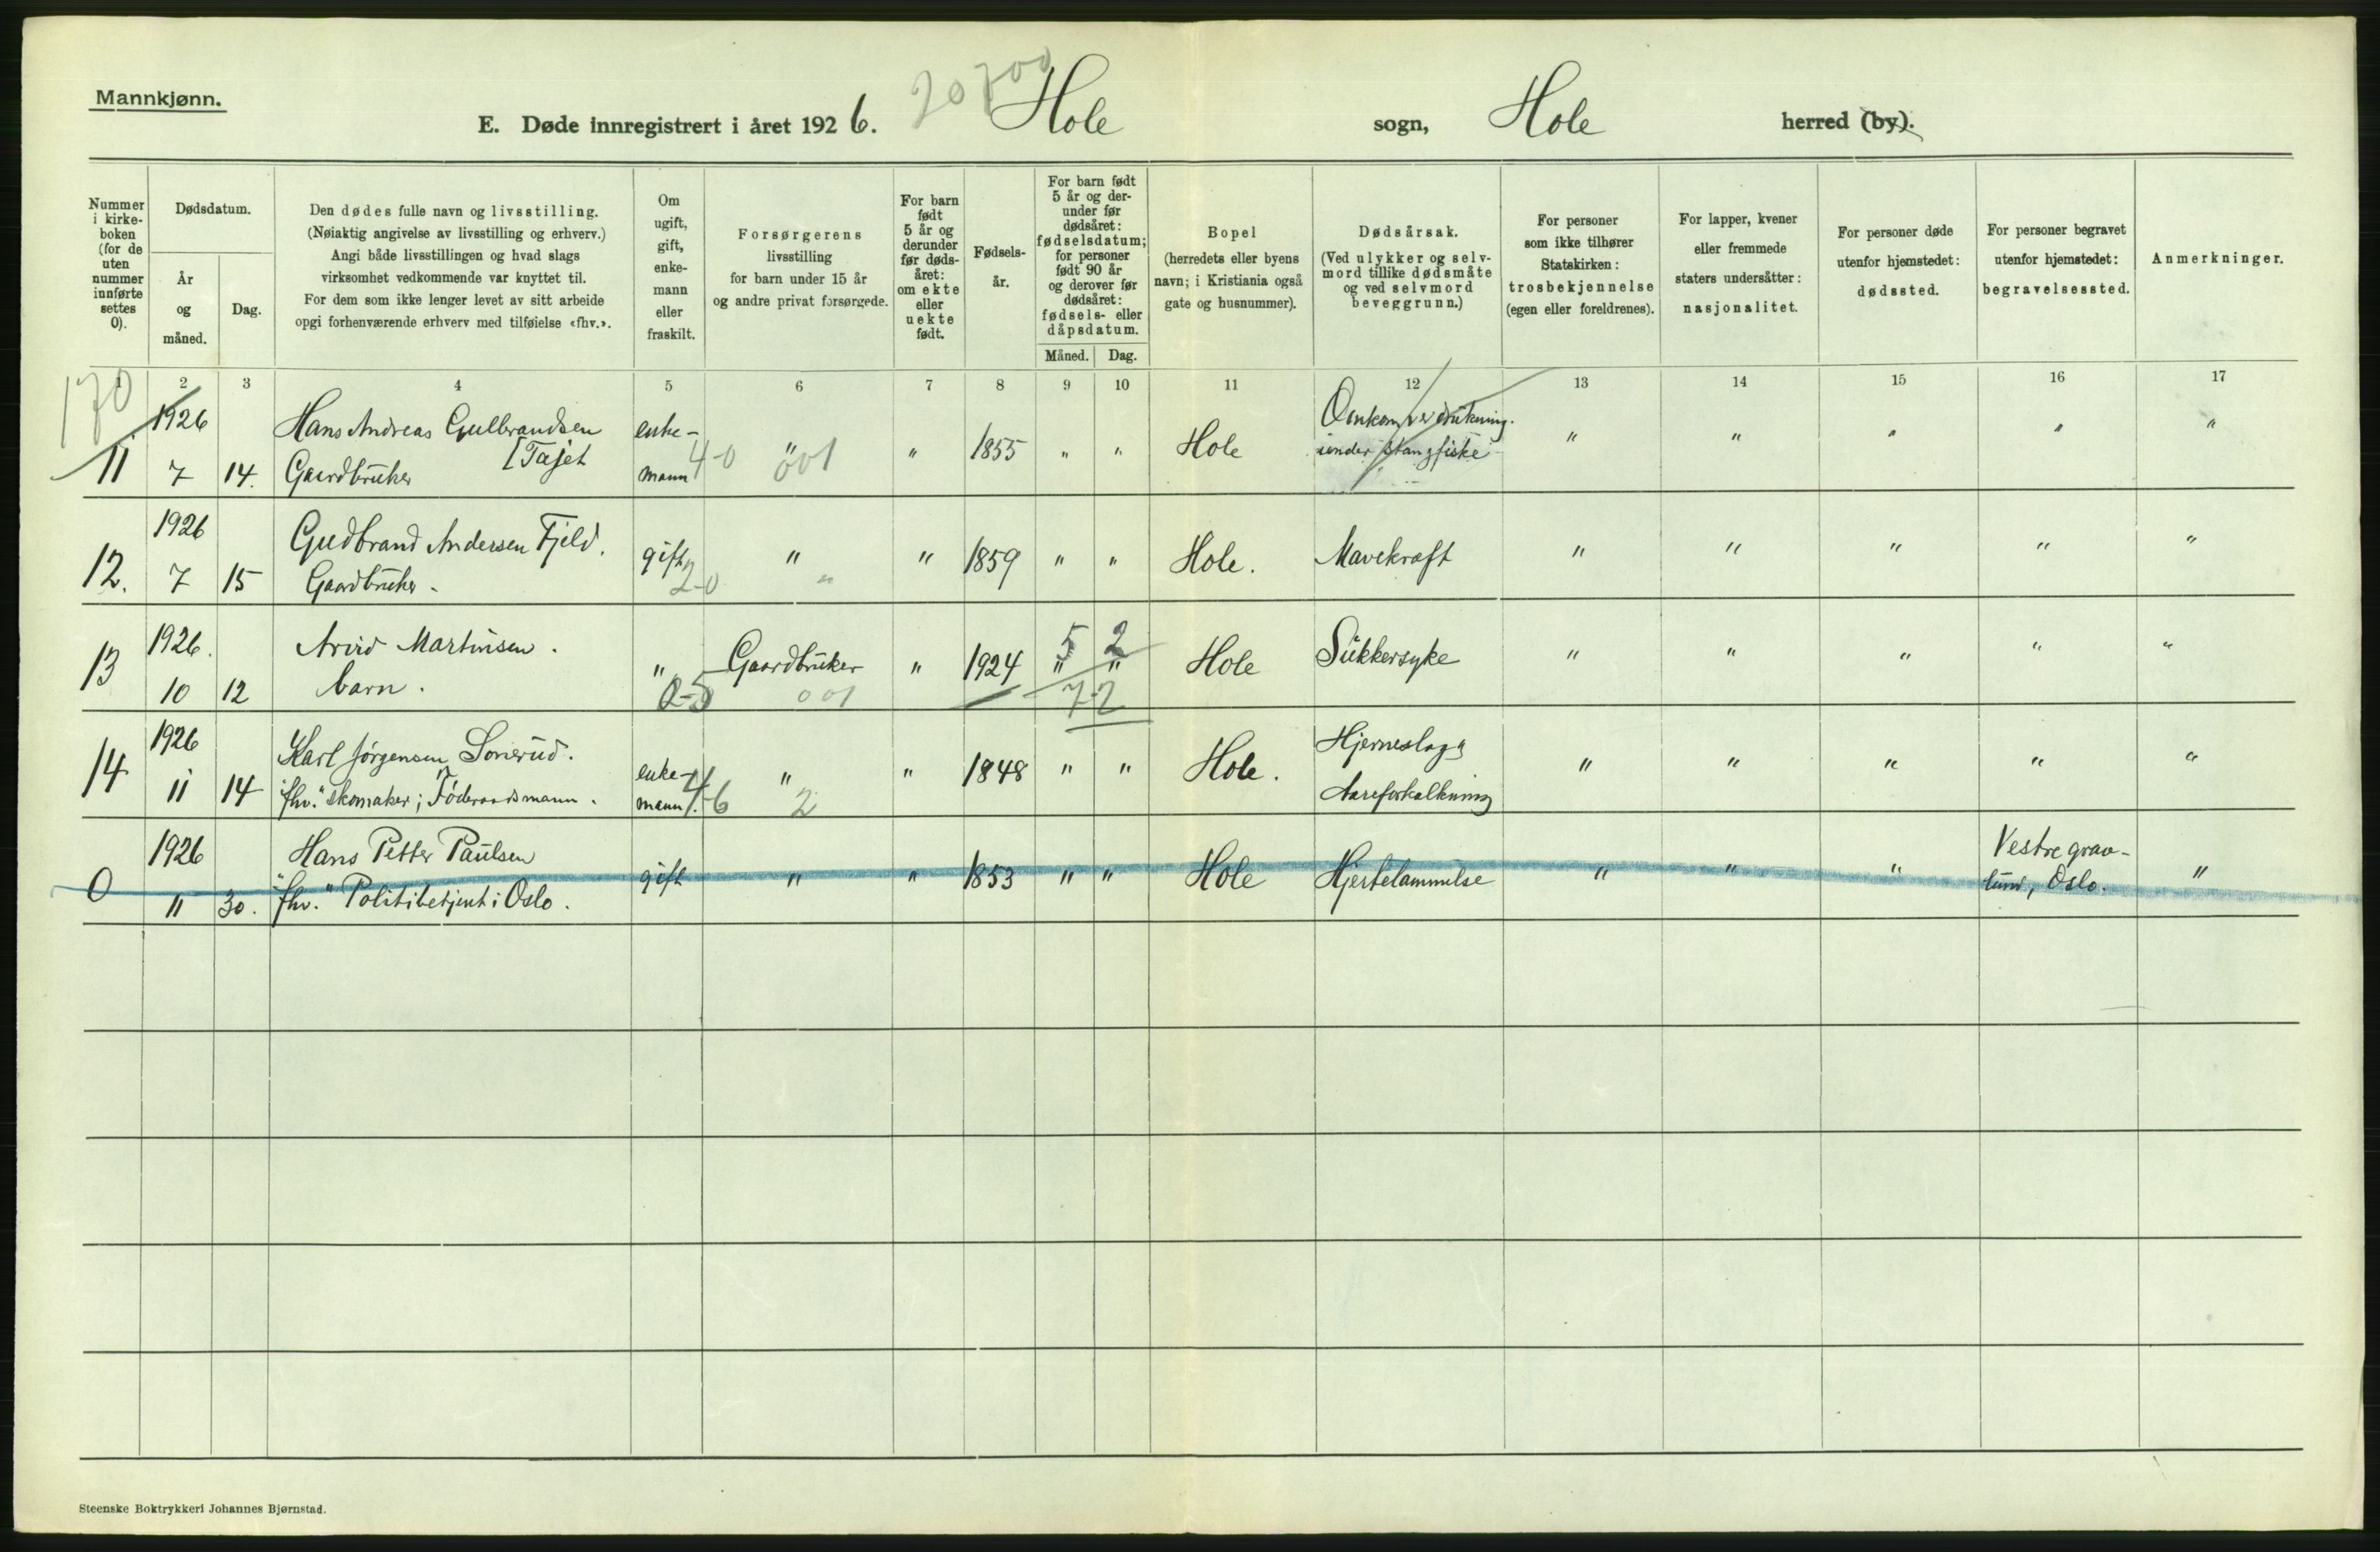 Mannkjønn.
20 700
E. Døde innregistrert i året 1926. Hole sogn, Hole herred (by).
Nummer i kirke-boken (for de uten nummer innførte settes 0).
Dødsdatum.
År og måned.
Dag.
Den dødes fulle navn og livsstilling.
(Nøiaktig angivelse av livsstilling og erhverv.)
Angi både livsstillingen og hvad slags
virksomhet vedkommende var knyttet til.
For dem som ikke lenger levet av sitt arbeide
opgi forhenværende erhverv med tilføielse «fhv.».
Om ugift, gift, enke-mann eller fraskilt.
Forsørgerens
livsstilling
for barn under 15 år
og andre privat forsørgede.
For barn født 5 år og derunder før døds-året: om ekte eller uekte født.
Fødsels-år.
For barn født 5 år og der-under før dødsåret: fødselsdatum; for personer født 90 år og derover før dødsåret: fødsels- eller dåpsdatum.
Måned. Dag.
Bopel
(herredets eller byens
navn; i Kristiania også
gate og husnummer).
Dødsårsak.
(Ved ulykker og selv-
mord tillike dødsmåte
og ved selvmord
beveggrunn.)
For personer
som ikke tilhører
Statskirken:
trosbekjennelse
(egen eller foreldrenes).
For lapper, kvener
eller fremmede
staters undersåtter:
nasjonalitet.
For personer døde
utenfor hjemstedet:
dødssted.
For personer begravet
utenfor hjemstedet:
begravelsessted.
Anmerkninger.
1 2 3 4 5 6 7 8 9 10 11 12 13 14 15 16 17
170
1926 Hans Andreas Gulbrandsen enke- " " 1855 " " Hole Omkom ver drukning. " " " " "
11 7 14. Gaardbruker [Tajet mann 4-0 001 under stangfiske
1926 Gudbrand Andersen Fjeld. gift " " 1859 " " Hole. Mavekræft " " " " "
12. 7 15 Gaardbruker. 2-0 "
1926. Arvid Martinsen. " Gaardbruker " 1924 5 2 " " Hole Sukkersyke " " " " "
13 10 12 barn. 0-5 001 7-2
1926 Karl Jørgensen Sonerud. enke- " " 1848 " " Hole. Hjerneslag " " " " "
14 11 14 "fhv." skomaker; Föderaadsmann. mann. 4-6 2 Aareforkalkning
1926 Hans Petter Paulsen gift " " 1853 " " Hole Hjertelammelse " " " Vestre grav- "
0 11 30. "fhv." Politibetjent i Oslo. lund, Oslo.
Steenske Boktrykkeri Johannes Bjørnstad.